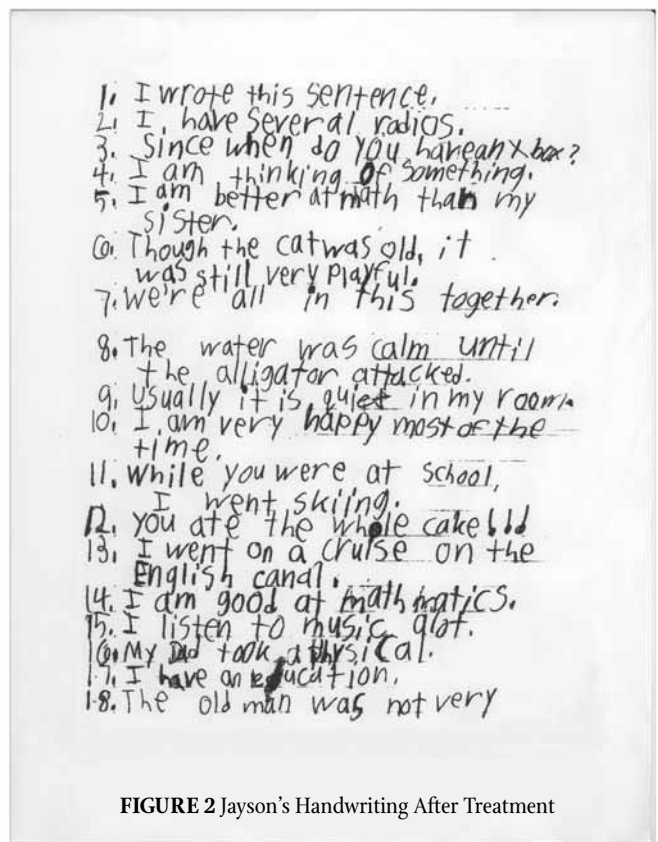 1. I wrote this sentence.
2. I have several radios.
3. Since when do you have an x box?
4. I am thinking of something.
5. I am better at math than my
sister.
6. Though the cat was old, it
was still very playful.
7. We're all in this together.
8. The water was calm until
the alligator attacked.
9. Usually it is quiet in my room.
10. I am very happy most of the
time.
11. While you were at school,
I went skiing.
12. you ate the whole cake!!!
13. I went on a cruise on the
English canal.
14. I am good at mathmatics.
15. I listen to music alot.
16. My Dad took a physical.
17. I have an education.
18. The old man was not very
FIGURE 2 Jayson's Handwriting After Treatment